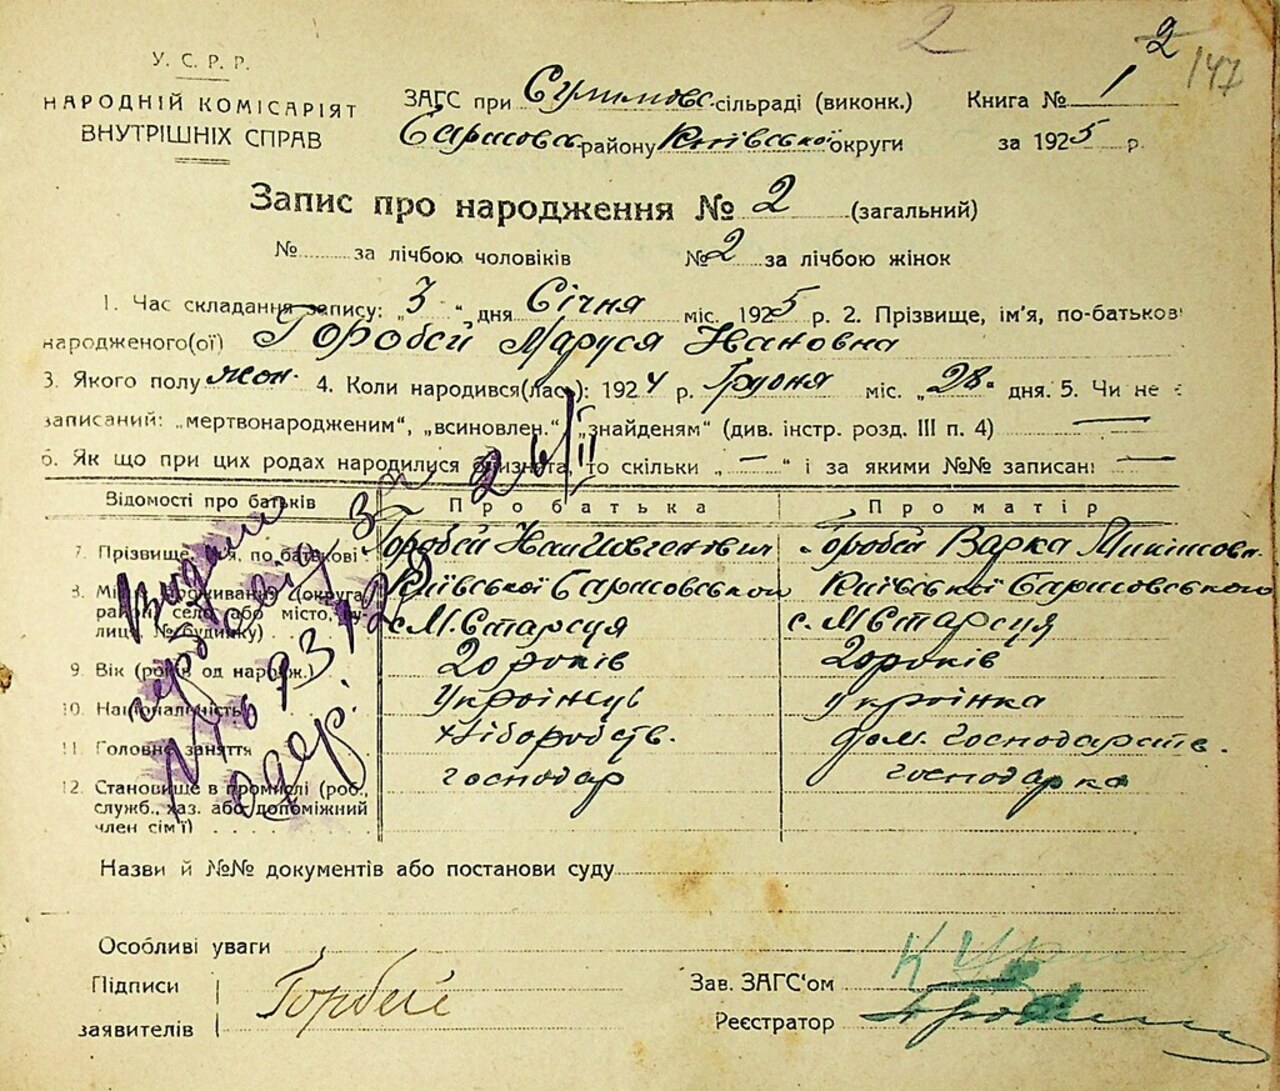 2
2
147
У. С. Р. Р.
НАРОДНІЙ КОМІСАРІЯТ
ВНУТРІШНІХ СПРАВ
ЗАГС при Сулимовс. сільраді (виконк.) Книга № 1
району Київської округи за 1925 р.
Запис про народження № 2 (загальний)
№ за лічбою чоловіків № 2 за лічбою жінок
1. Час складання запису: „3“ дня Січня міс. 1925 р. 2. Прізвище, ім'я, по-батькові
народженого(ої) Горобей Маруся Ивановна
3. Якого полу жон. 4. Коли народився(лась): 1924 р. Грудня міс. „28“ дня. 5. Чи не є
записаний: „мертвонародженим“, „всиновлен.“, „знайденям“ (див. інстр. розд. III п. 4) —
6. Як що при цих родах народилися близнята, то скільки „—“ і за якими №№ записані —
Відомості про батьків Про батька Про матір
7. Прізвище, ім'я, по батькові Горобей Иван Горобей Варка
8. Місце проживання (округа, Київської Київської
район, село або місто, ву- с. М. Старица с. М Старица
лиця № будинку)
9. Вік (років од народж.) 20 років 20 років
10. Національність Украінець украінка
11. Головне заняття хліборобств. дом. господарств.
12. Становище в промислі (роб., господар господарка
служб., хаз. або допоміжний
член сім'ї)
Видано
одер.
Назви й №№ документів або постанови суду
Особливі уваги
Підписи Горбей Зав. ЗАГС'ом
заявителів Реєстратор